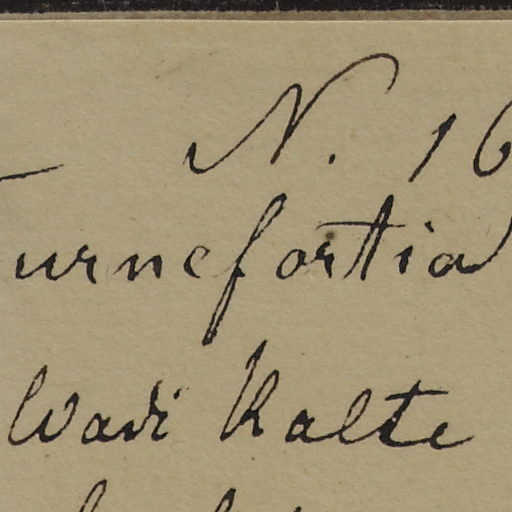 N. 16
urnefortia
Wadi Kalte